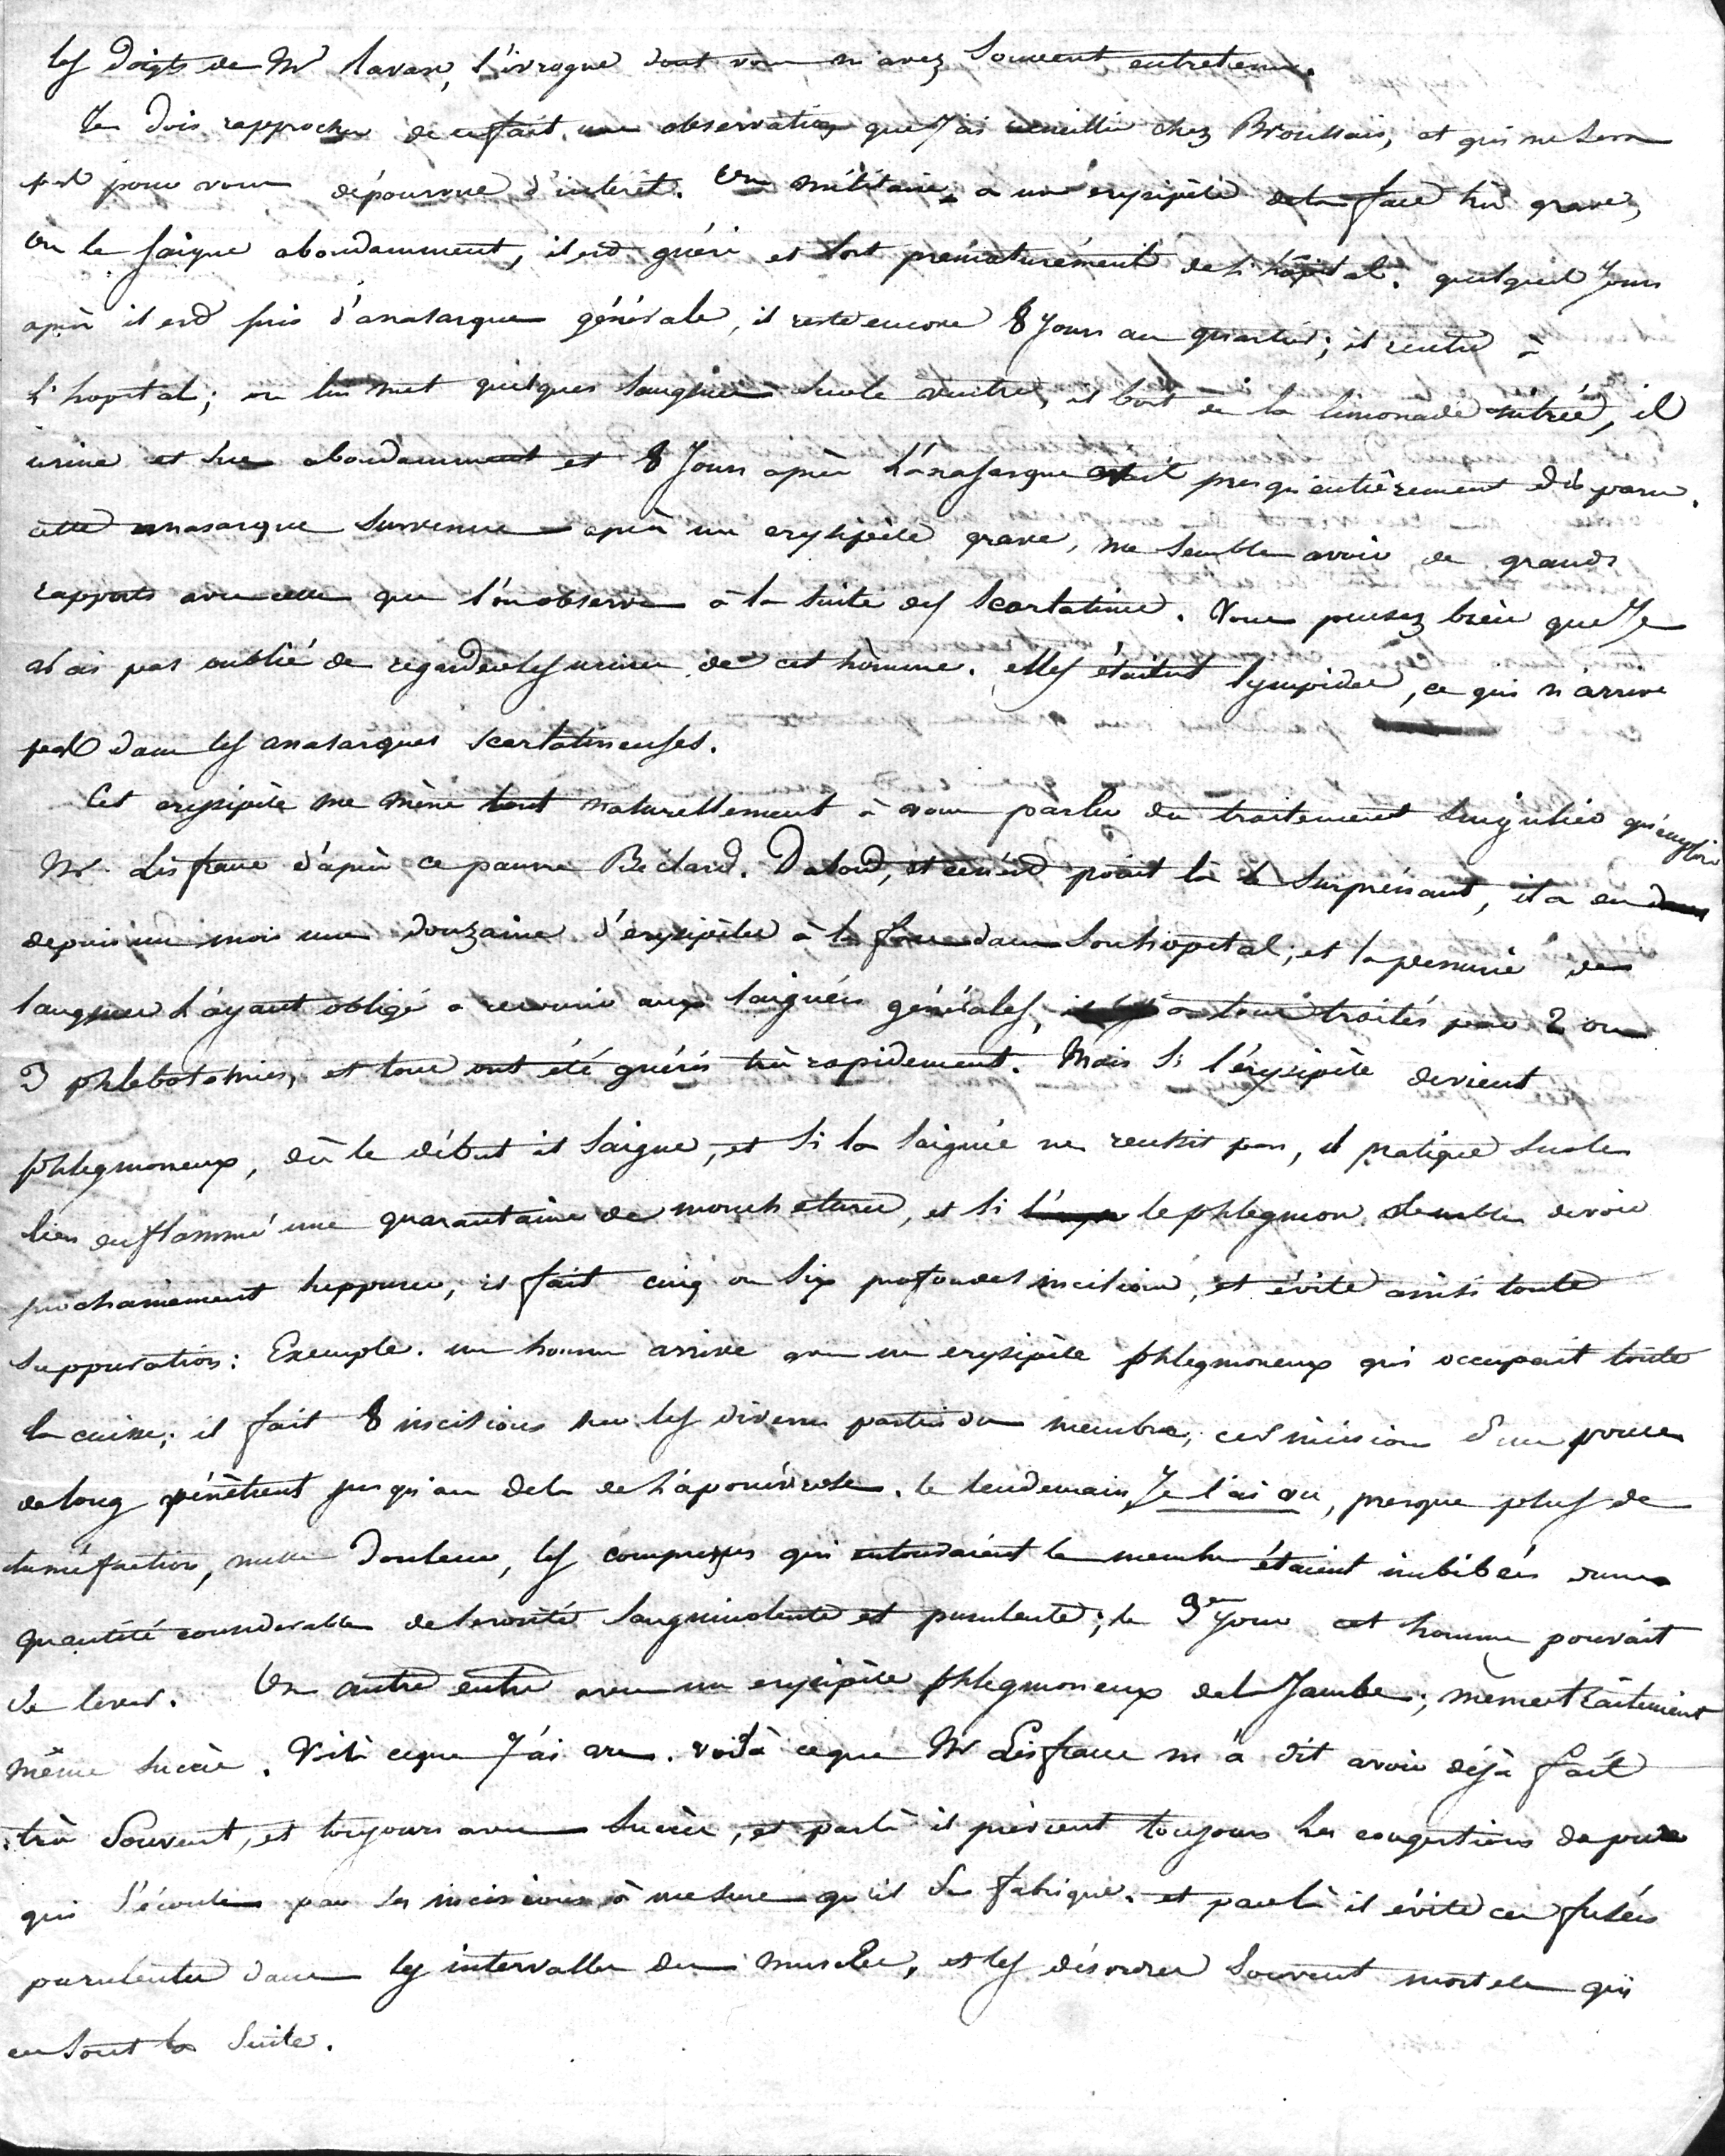 les doigts de Mr Ravan, l'ivrogne dont vous m'avez souvent entretenu.
Je dois rapprocher de ce fait une observation que j'ai recueillie chez Broussais, et qui ne sera
pas pour vous dépourvue d'intérêt. Un militaire a un erysipèle de la face très grave,
on le saigne abondamment, il est guéri et sort prématurément de l'hôpital. quelques jours
après il est pris d'anasarque générale, il reste encore 8 jours au quartier; il rentre à
l'hopital; on lui met quelques sangsues sur le ventre, il boit de la limonade nitrée, il
urine et sue abondamment et 8 jours après l'anasarque était presqu'entièrement disparu.
cette anasarque survenue après un erysipèle grave, me semble avoir de grands
rapports avec celle que l'on observe à la suite des scarlatines. Vous pensez bien que je
n'ai pas oublié de regarder les urines de cet homme. elles étaient lympides, ce qui n'arrive
pas dans les anasarques scarlatineuses.
Cet erysipèle me mène tout naturellement à vous parler du traitement singulier qu'emploie
Mr. Lisfranc d'après ce pauvre Béclard. D'abord, et ce n'est point là le surprenant, il a eu
depuis un mois une douzaine d'erysipèles à la face dans son hopital; et la penurie de
sangsues l'ayant obligé a recourir aux saignées générales, il les a tous traités par 2 ou
3 phlebotomies, et tous ont été guéris très rapidement. Mais si l'érysipèle devient
phlegmoneux, dès le début il saigne, et si la saignée ne reussit pas, il pratique sur le
lieu enflammé une quarantaine de mouchetures, et si le phlegmon semble devoir
prochainement suppurer, il fait cinq ou six profondes incisions, et évite ainsi toute
suppuration: Exemple. un homme arrive avec un erysipèle phlegmoneux qui occupait toute
la cuisse; il fait 8 incisions sur les diverses parties du membre, ces incisions d'un pouce
de long pénètrent jusqu'au delà de l'aponévrose. le lendemain je l'ai vu, presque plus de
tuméfaction, nulle douleur, les compresses qui entouraient le membre étaient imbibées d'une
quantité considerable de serosité sanguinolente et purulente; le 3e jour cet homme pouvait
se lever. Un autre entre avec un erysipèle phlegmoneux de la Jambe; même traitement
même succès. Voilà ce que j'ai vu. voilà ce que Mr Lisfranc m'a dit avoir déjà fait
très souvent, et toujours avec succès, et par là il prévient toujours les congestions de pus
qui s'écoule par les incisions à mesure qu'il se fabrique. et par là il évite ces fusées
purulentes dans les intervalles des muscles, et les désordres souvent mortels qui
en sont la suite.